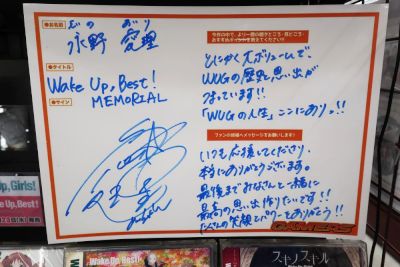 ●お名前
えの あいり
永野 愛理
●タイトル
Wake Up, Best!
MEMORIAL
●サイン
今作の中で、より一層の聴きどころ・見どころ・
おすすめポイントを教えてください!!
とにかく大ボリュームで、
WUGの歴史と思い出が
つまっています!!
「WUGの人生」ここにありっ!!
ファンの皆様へメッセージをお願いします!
いつも応援してくださり、
本当にありがとうございます。
最後までみなさんと一緒に
最高の思い出作りたいです!!
たくさんの笑顔とパワーをありがとう!!
GAMERS
Up, Girls!
Up, Best!
Wake Up, Best!
スキノスキル